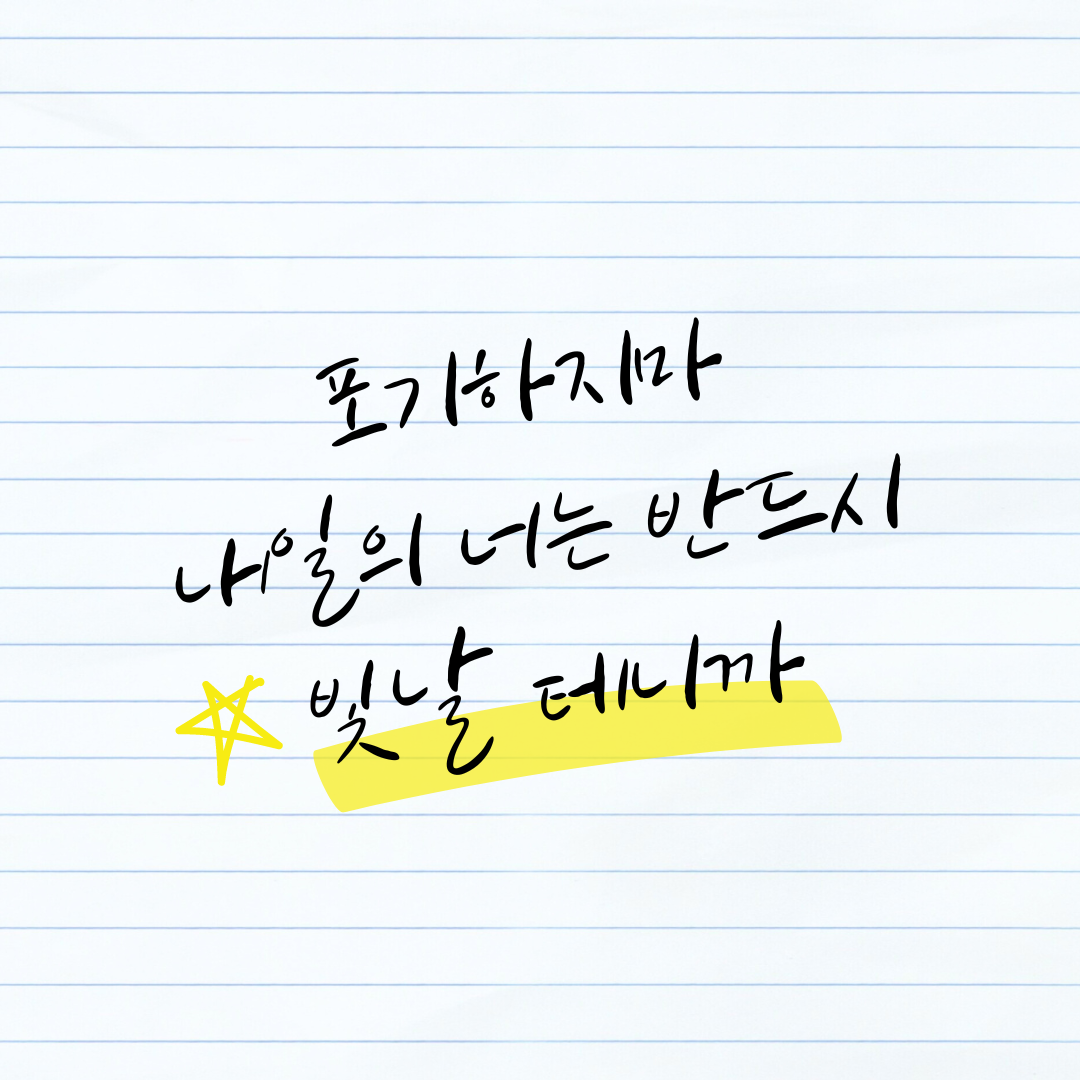 포기하지마
내일의 너는 반드시
빛날 테니까